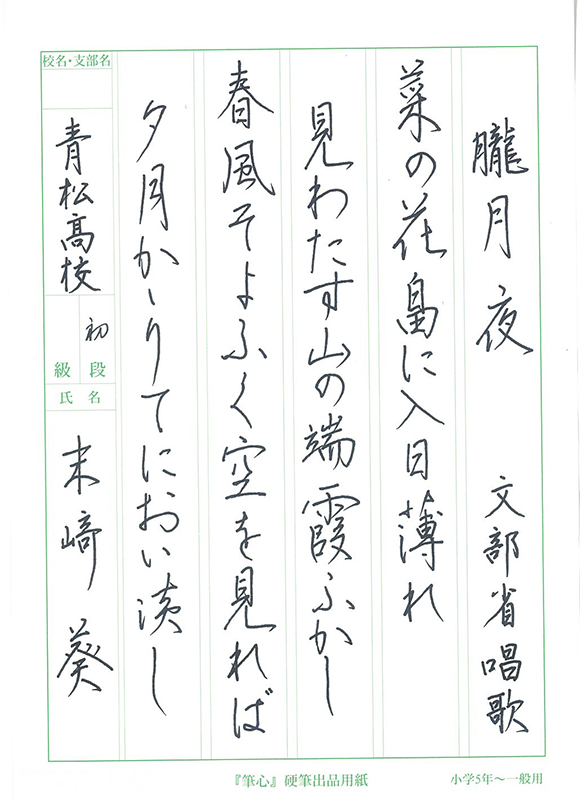 朧月夜　文部省唱歌
菜の花畠に入日薄れ
見わたす山の端霞ふかし
春風そよふく空を見れば
夕月かゝりてにおい淡し
校名・支部名
青松高校
初
段
級
氏名
末﨑葵
『筆心』硬筆出品用紙
小学5年～一般用